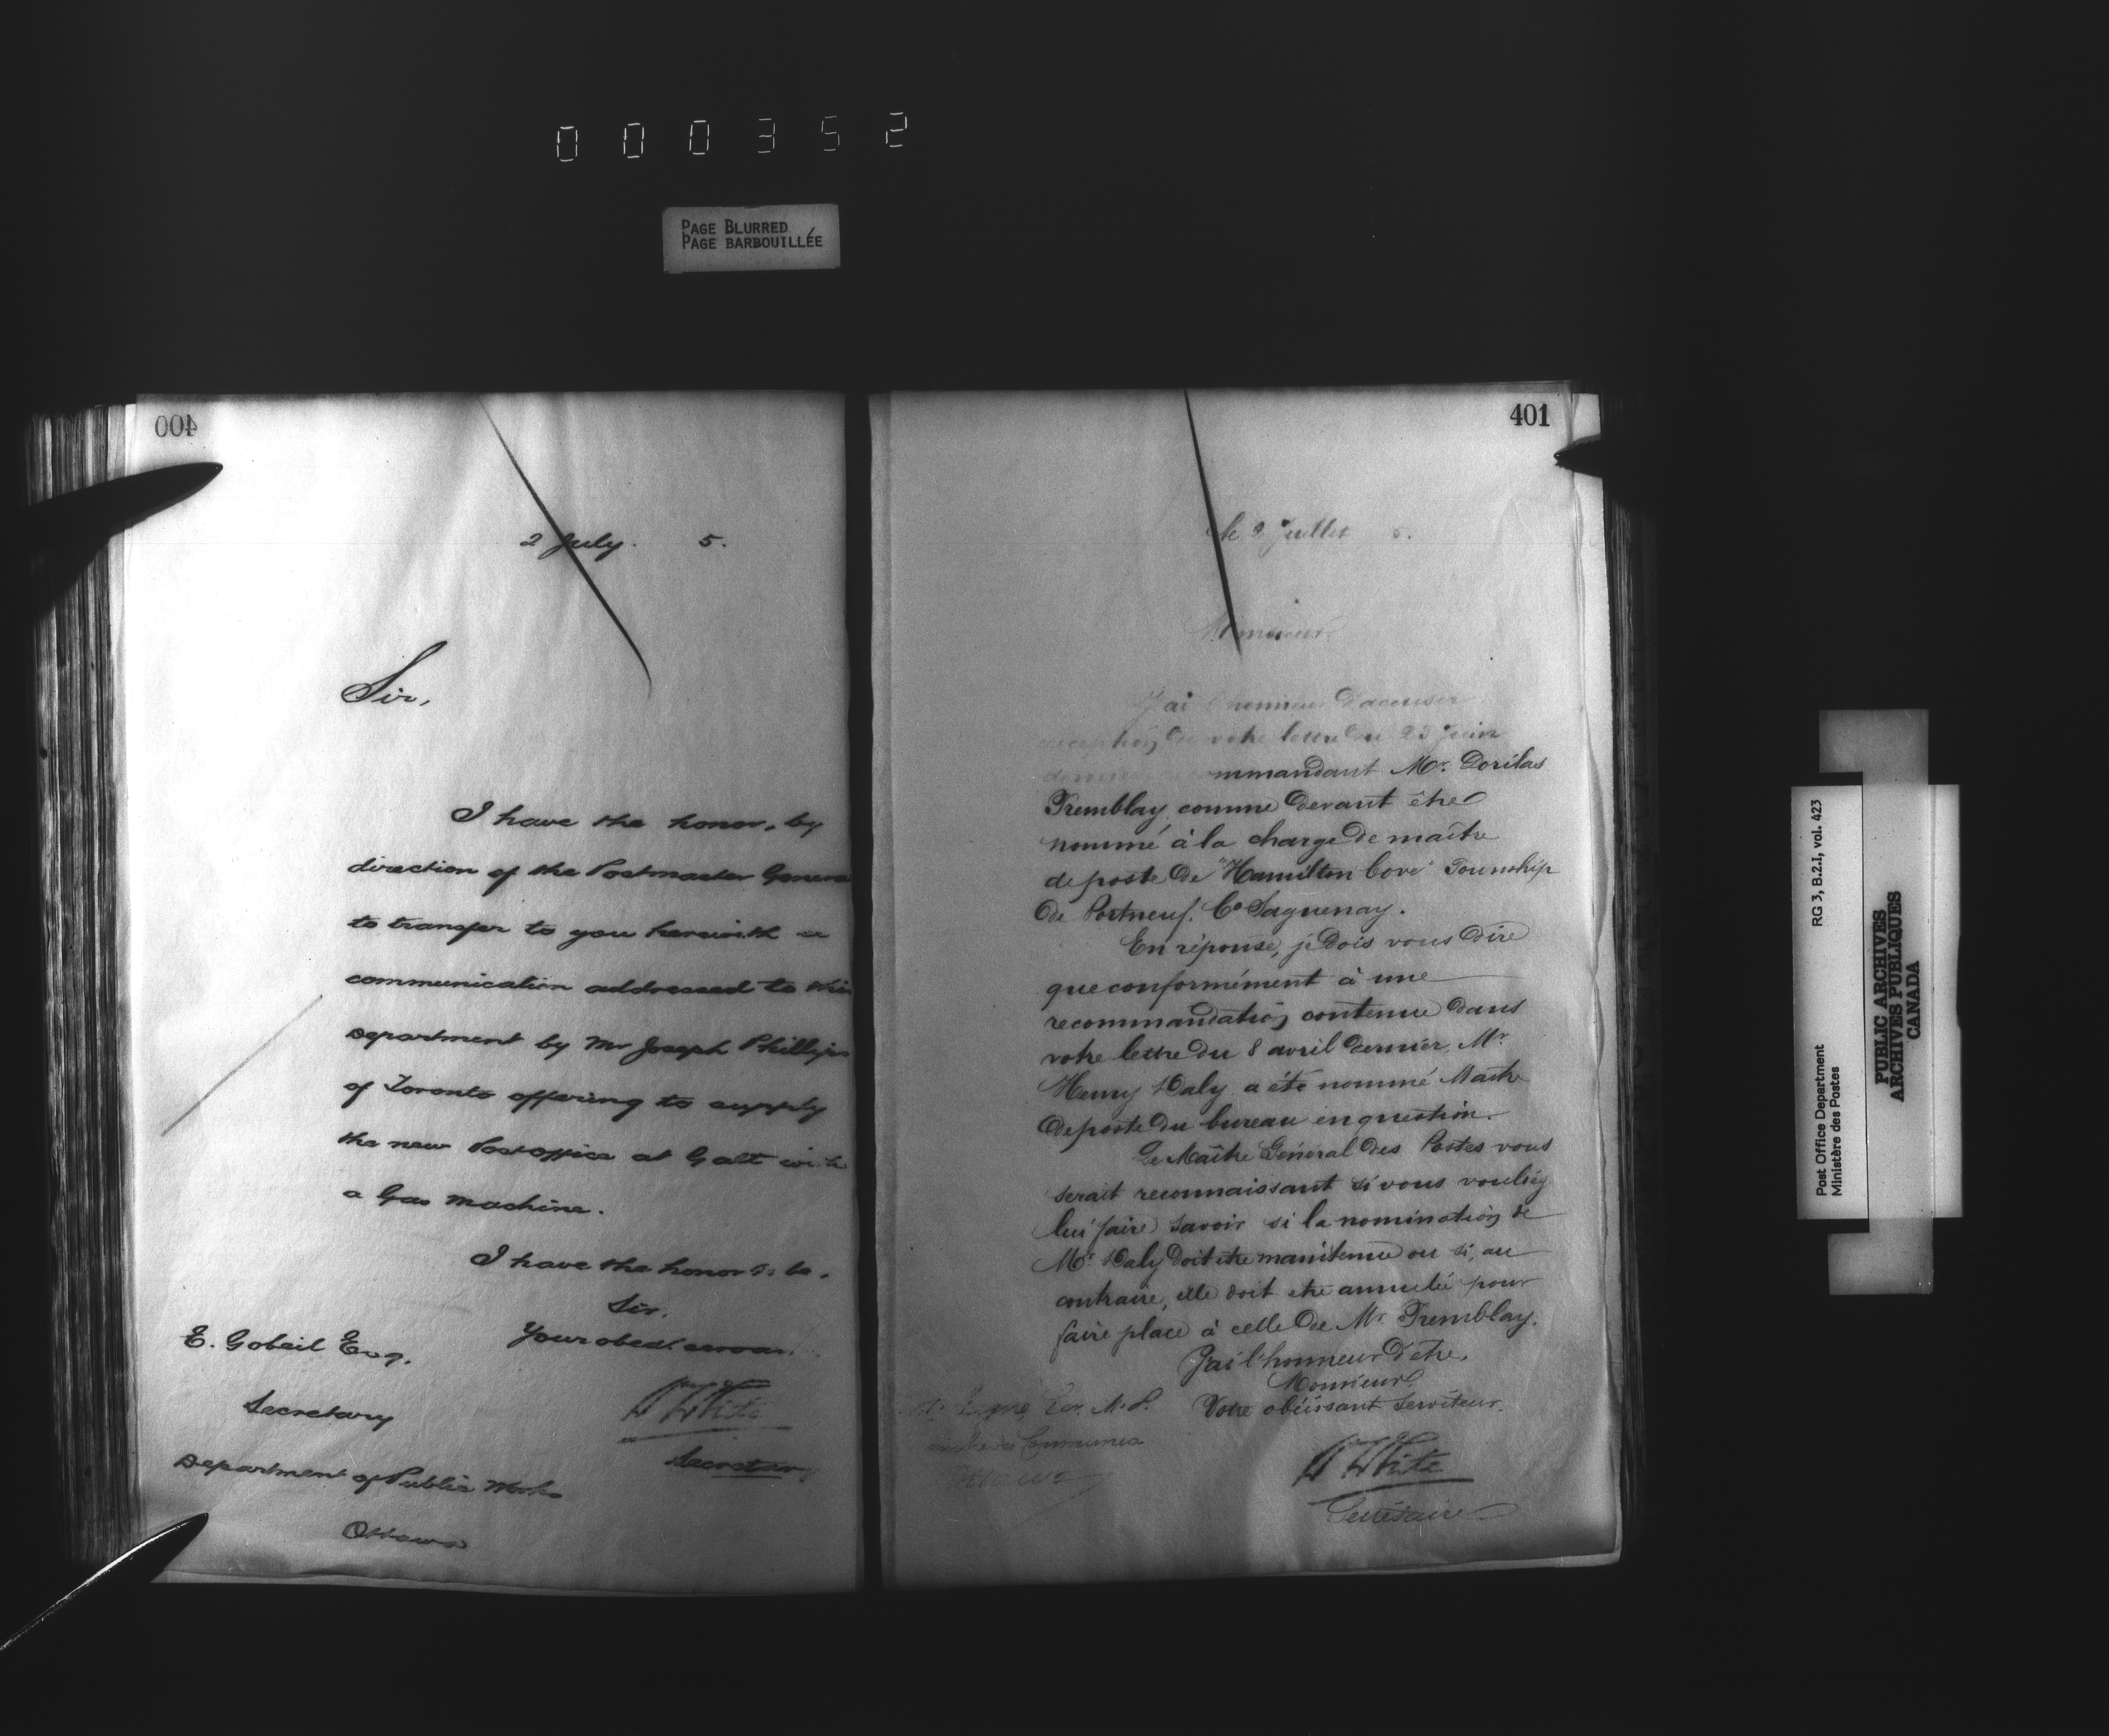 000352
PAGE BLURRED
PAGE BARBOUILLÉE
400
2 July. 5.
Sir,
I have the honor, by
direction of the Postmaster General
to transfer to you herewith a
communication addressed to this
Department by Mr Joseph Phillips
of Toronto offering to supply
the new Post office at Galt with
a Gas Machine.
I have the honor to be.
Sir,
Your obedt servant
E. Gobeil Esq.
Secretary
Department of Public Works
Ottawa
W White
Secretary
401
le 2 Juillet 5.
Monsieur
J'ai l'honneur d'accuser
réception de votre lettre du 23 Juin
dernier recommandant Mr. Dorilas
Tremblay comme devant être
nommé à la charge de maître
de poste de "Hamilton Cove" Township
de Portneuf. Co Saguenay.
En réponse, je dois vous dire
que conformément à une
recommandation contenue dans
votre lettre du 8 avril dernier, Mr
Henry Daly a été nommé Maître
de poste du bureau en question.
Le Maître Général des Postes vous
serait reconnaissant si vous vouliez
lui faire savoir si la nomination de
Mr Daly doit etre maintenue ou si, au
contraire, elle doit etre annulée pour
faire place à celle de Mr Tremblay.
J'ai l'honneur d'etre,
Monsieur,
Votre obéissant Serviteur.
M.P.
des Communes
W White
Secrétaire
Post Office Department RG 3, B.2.I, vol. 423
Ministère des Postes
PUBLIC ARCHIVES
ARCHIVES PUBLIQUES
CANADA